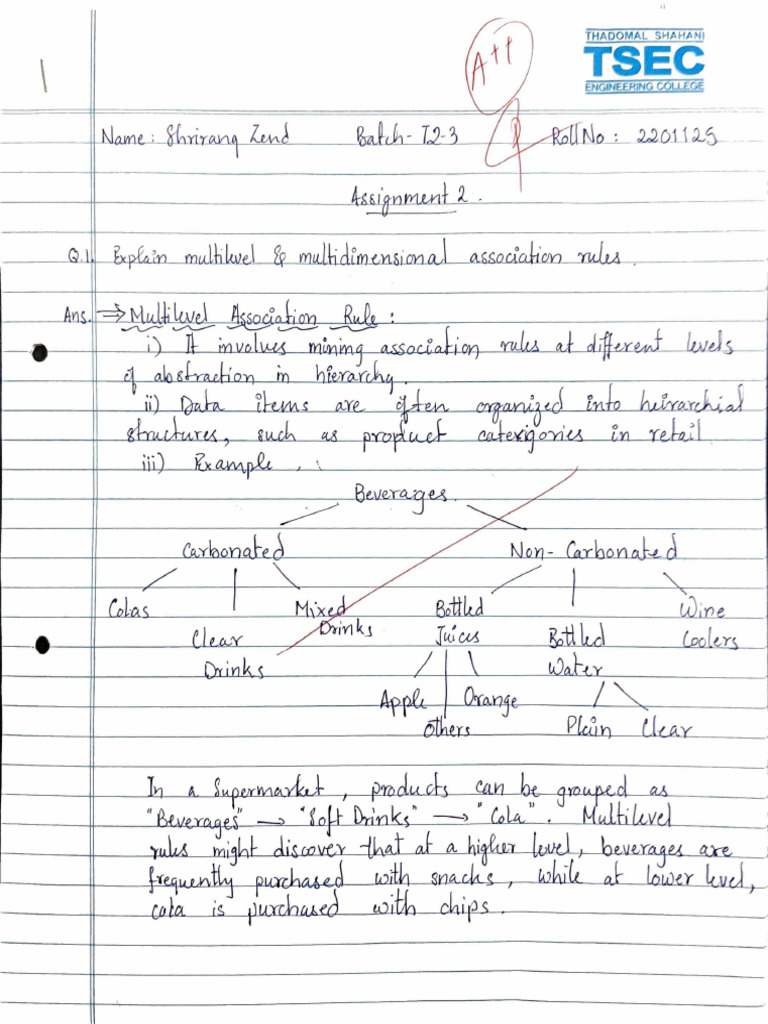 THADOMAL SHAHANI
TSEC
ENGINEERING COLLEGE
A++
Name: Shrirang Zend Batch- T2-3 Roll No: 2201125
Assignment 2.
Q.1. Explain multilevel & multidimensional association rules.
Ans. ⇒ Multilevel Association Rule :
i) It involves mining association rules at different levels
of abstraction in hierarchy.
ii) Data items are often organized into heirarchial
structures, such as product categories in retail
iii) Example , :
Beverages.
Carbonated Non- Carbonated
Colas Mixed Bottled Wine
Clear Drinks Juices Bottled Coolers
Drinks Water
Apple Orange
Others Plain Clear
In a Supermarket , products can be grouped as
"Beverages" → "Soft Drinks" → "Cola". Multilevel
rules might discover that at a higher level, beverages are
frequently purchased with snacks, while at lower level,
cola is purchased with chips.